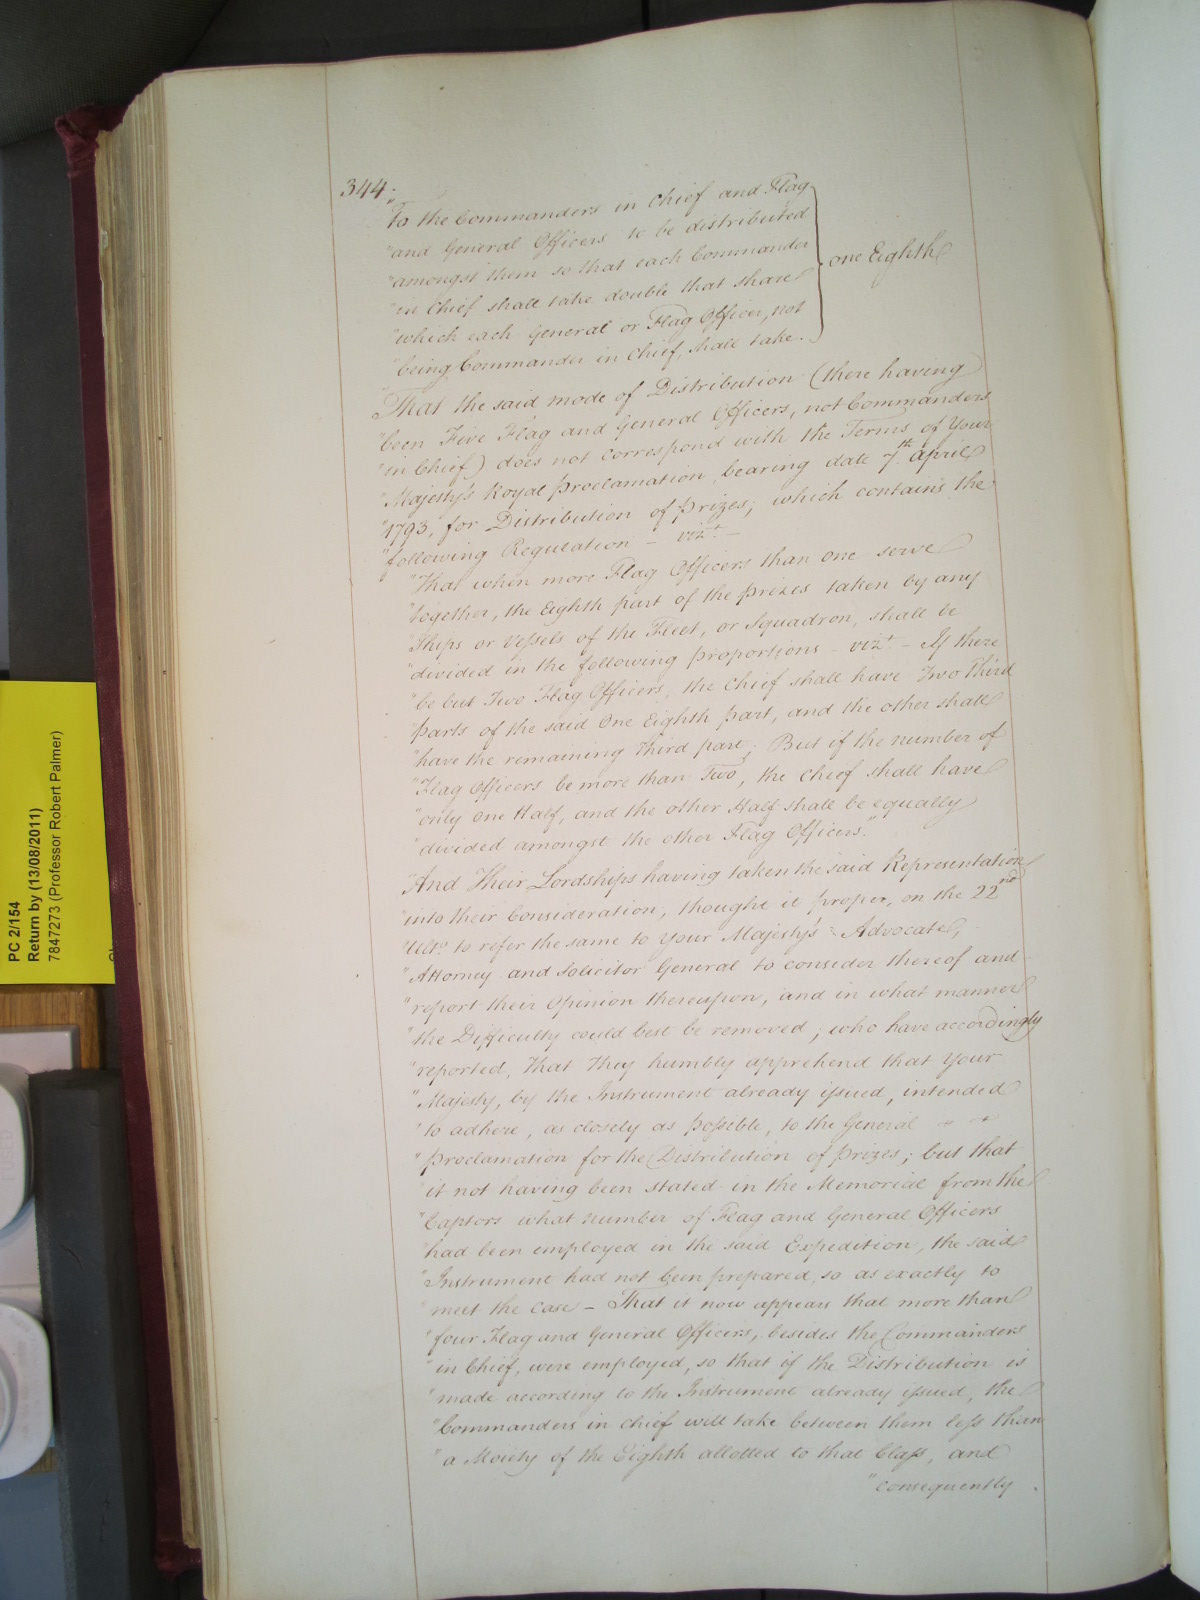 344.
"To the Commanders in Chief and Flag
"and General Officers to be distributed
"amongst them so that each Commander
"in Chief shall take double that share
"which each General or Flag Officer, not
"being Commander in Chief, shall take.
one Eighth
"That the said mode of Distribution (there having
"been Five Flag and General Officers, not Commanders
"in Chief) does not correspond with the Terms of Your
"Majesty's Royal Proclamation, bearing date 7th April
"1793, for Distribution of Prizes; which contains the
"following Regulation – vizt. –
"That when more Flag Officers than one serve
"together, the Eighth part of the Prizes taken by any
"Ships or Vessels of the Fleet, or Squadron, shall be
"divided in the following proportions – vizt. – If there
"be but Two Flag Officers, the Chief shall have Two Third
"parts of the said One Eighth part, and the other shall
"have the remaining third part; But if the number of
"Flag Officers be more than Two, the Chief shall have
"only one Half, and the other Half shall be equally
"divided amongst the other Flag Officers."
"And Their Lordships having taken the said Representation
"into their Consideration, thought it proper, on the 22nd
"Ulto. to refer the same to Your Majesty's Advocate,
"Attorney and Solicitor General to consider thereof and
"report their Opinion thereupon, and in what manner
"the Difficulty could best be removed; who have accordingly
"reported, That They humbly apprehend that Your
"Majesty, by the Instrument already issued, intended
"to adhere, as closely as possible, to the General
"Proclamation for the Distribution of Prizes; but that
"it not having been stated in the Memorial from the
"Captors what number of Flag and General Officers
"had been employed in the said Expedition, the said
"Instrument had not been prepared, so as exactly to
"meet the Case – That it now appears that more than
"four Flag and General Officers, besides the Commanders
"in Chief, were employed, so that if the Distribution is
"made according to the Instrument already issued, the
"Commanders in Chief will take between them less than
"a Moiety of the Eighth allotted to that Class, and
"consequently
PC 2/154
Return by (13/08/2011)
7847273 (Professor Robert Palmer)